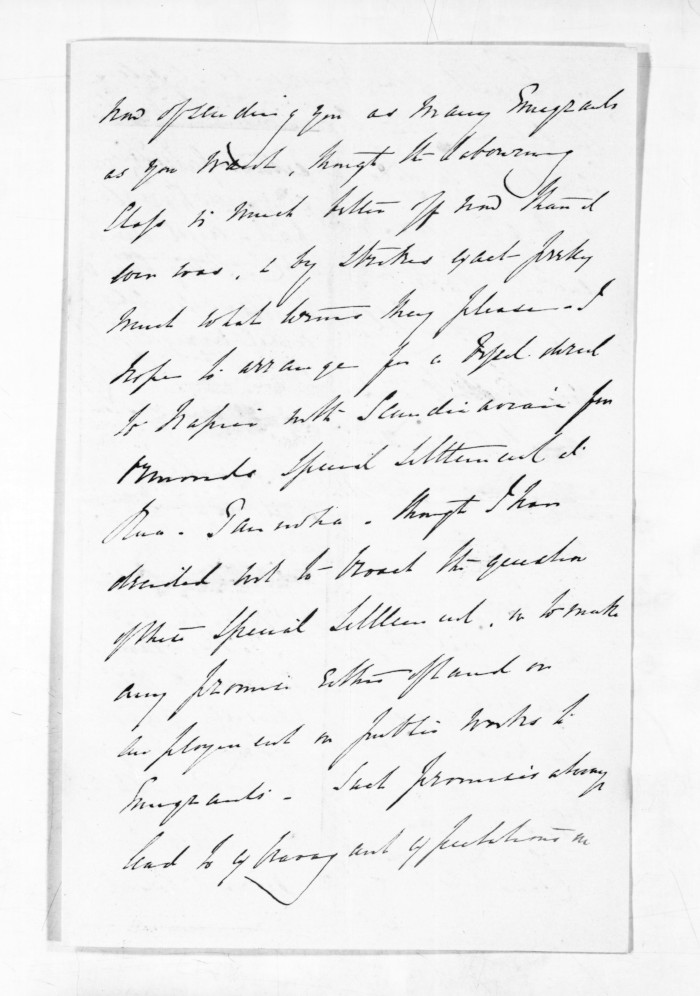 now of sending you as many Emigrants
as you want, though the labouring
Class is much better off now than it
ever was, & by strikes exact pretty
much what terms they please - I
hope to arrange for a Vessel direct
to Napier with Scandinavians for
Ormonds Special Settlement at
Rua - Taniwha - though I have
decided not to broach the question
of this Special Settlement, or to make
any promise either of land or
employment on public works to
Emigrants - Such promises always
lead to extravagant expectations on